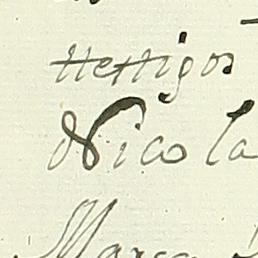 ttestigos
Nicola
Marca